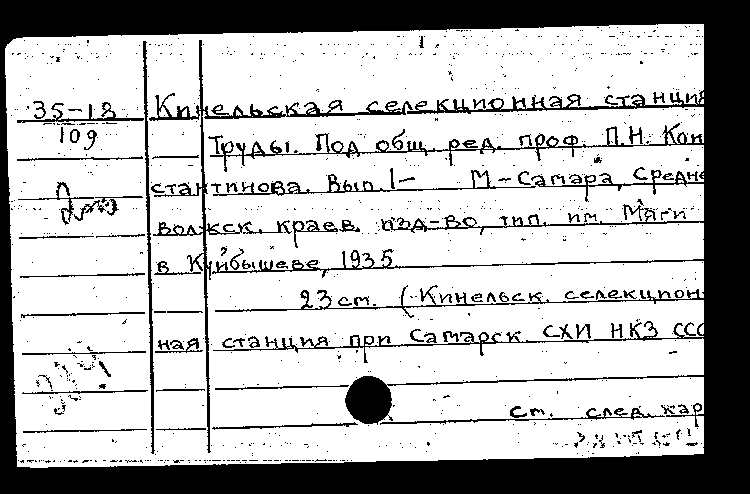 35-18
109
Кинельская селекционная станция
Труды. Под общ. ред. проф. П.Н. Кон
стантинова. Вып. 1- М.-Самара, Средне
волжск. краев. изд-во, тип. им. Мяги
в Куйбышеве, 1935
23 см. (Кинельск. селекцион
ная станция при Самарск. СХИ НКЗ ССС
См. след. кар